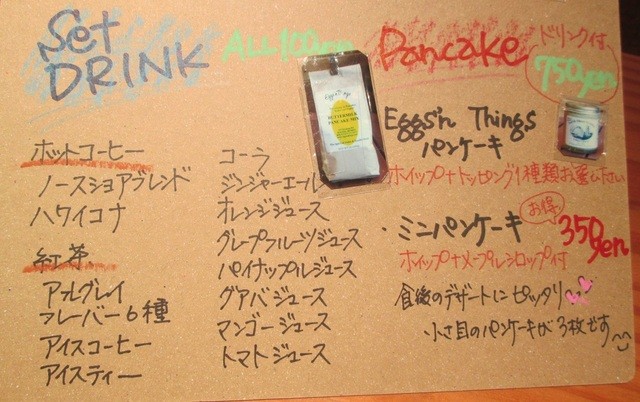 Set
DRINK
ALL 100yen
ホットコーヒー
ノースショアブレンド
ハワイコナ
紅茶
アールグレイ
フレーバー6種
アイスコーヒー
アイスティー
コーラ
ジンジャーエール
オレンジジュース
グレープフルーツジュース
パイナップルジュース
グアバジュース
マンゴージュース
トマトジュース
BUTTERMILK
PANCAKE MIX
Pancake
ドリンク付
750yen
Eggs'n Things
パンケーキ
ホイップ+トッピング1種類お選び下さい
お得
・ミニパンケーキ
350yen
ホイップ+メープルシロップ付
食後のデザートにピッタリ〜
小さ目のパンケーキが3枚です